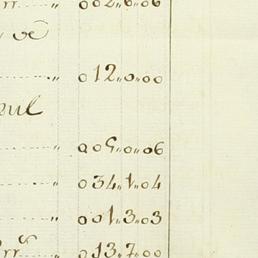 002„6„06
„ 012„0„00
„ 009„0„06
„ 034„1„04
„ 001„3„03
„ 013„7„00